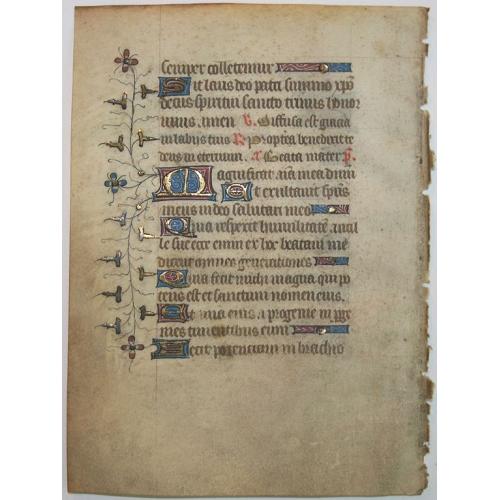 semper colletemur
Sit laus deo patri summo xpo
decus spiritui sancto trinus honor
unus. amen V. Diffusa est gracia
in labijs tuis R Propterea benedixit te
deus in eternum. a Beata mater p.
Magnificat aia mea dnm
Et exultavit sps
meus in deo salutari meo
Quia respexit humilitate ancil
le sue ecce enim ex hoc beatam me
dicent omnes generationes
Quia fecit michi magna qui po
tens est et sanctum nomen eius.
Et mia eius a progenie in pge
nies timentibus eum
Fecit potenciam in brachio